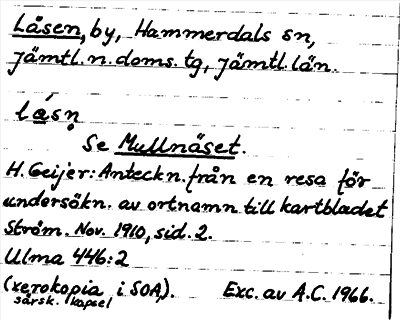 Låsen, by, Hammerdals sn,
Jämtl. n. doms. tg, Jämtl. län.
lá̱sn̥
Se Mullnäset.
H. Geijer: Anteckn. från en resa för
undersökn. av ortnamn till kartbladet
Ström. Nov. 1910, sid. 2.
Ulma 446:2
(xerokopia i SOA). Exc. av A.C. 1966.
särsk. kapsel